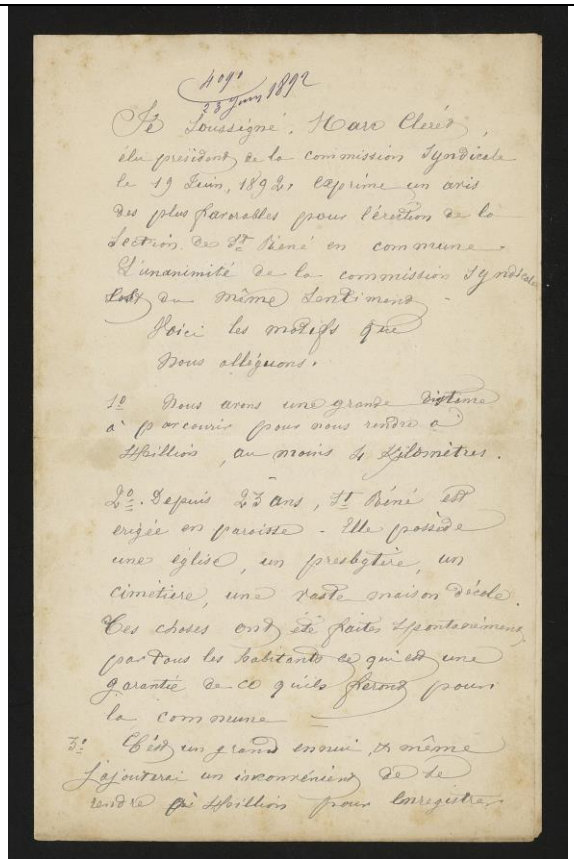 4091
23 Juin 1892
Je Soussigné, Marc Cléret,
élu président de la commission Syndicale
le 19 Juin, 1892, exprime un avis
des plus favorables pour l'érection de la
Section de St René en commune.
L'unanimité de la commission Syndicale
est du même Sentiment.
Voici les motifs que
nous alléguons.
1º Nous avons une grande distance
à parcourir pour nous rendre à
Hillion, au moins 4 Kilomètres.
2º. Depuis 23 ans, St Réné est
erigée en paroisse - Elle possède
une église, un presbytère, un
cimetière, une vaste maison d'école.
Ces choses ont été faites Spontanément
par tous les habitants ce qui est une
garantie de ce qu'ils feront pour
la commune —
3º C'est un grand ennui, & même
j'ajouterai un inconvénient de se
rendre à Hillion pour Enregistrer